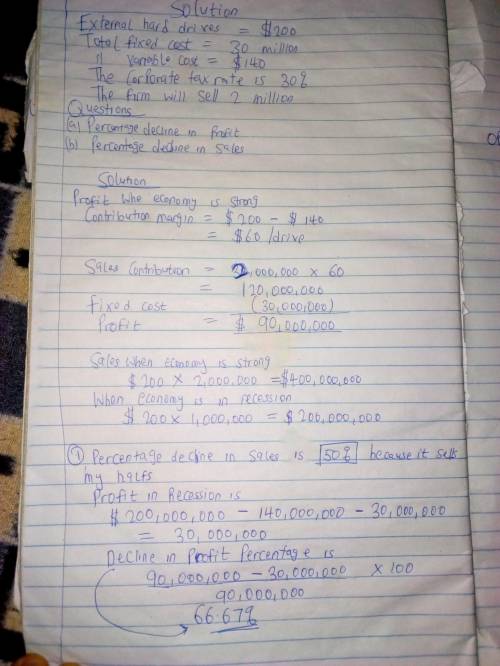 Solution
External hard drives = $200
Total fixed cost = 30 million
11 variable cost = $140
The Corporate tax rate is 30%
The firm will sell 2 million
Questions
(a) Percentage decline in Profit
(b) Percentage decline in Sales
Solution
Profit Whe economy is strong
Contribution margin = $200 - $140
= $60/drive
Sales Contribution = 2,000,000 x 60
= 120,000,000
Fixed cost (30,000,000)
Profit = $ 90,000,000
Sales When Economy is strong
$200 x 2,000,000 = $400,000,000
When Economy is in recession
$200 x 1,000,000 = $200,000,000
Percentage decline in Sales is 50% because it sells
my halfs
Profit in Recession is
$200,000,000 - 140,000,000 - 30,000,000
= 30,000,000
Decline in Profit Percentage is
90,000,000 - 30,000,000 x 100
90,000,000
66.67%